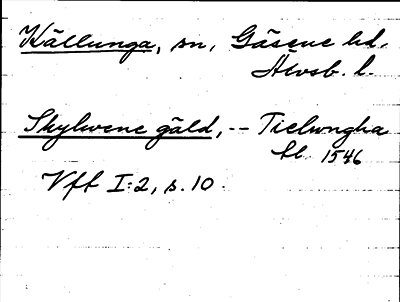 Källunga, sn, Gäsene hd.
Älvsb. l.
Skylwene gäld, -- Tielwngha
hl 1546
Vff I:2, s. 10.